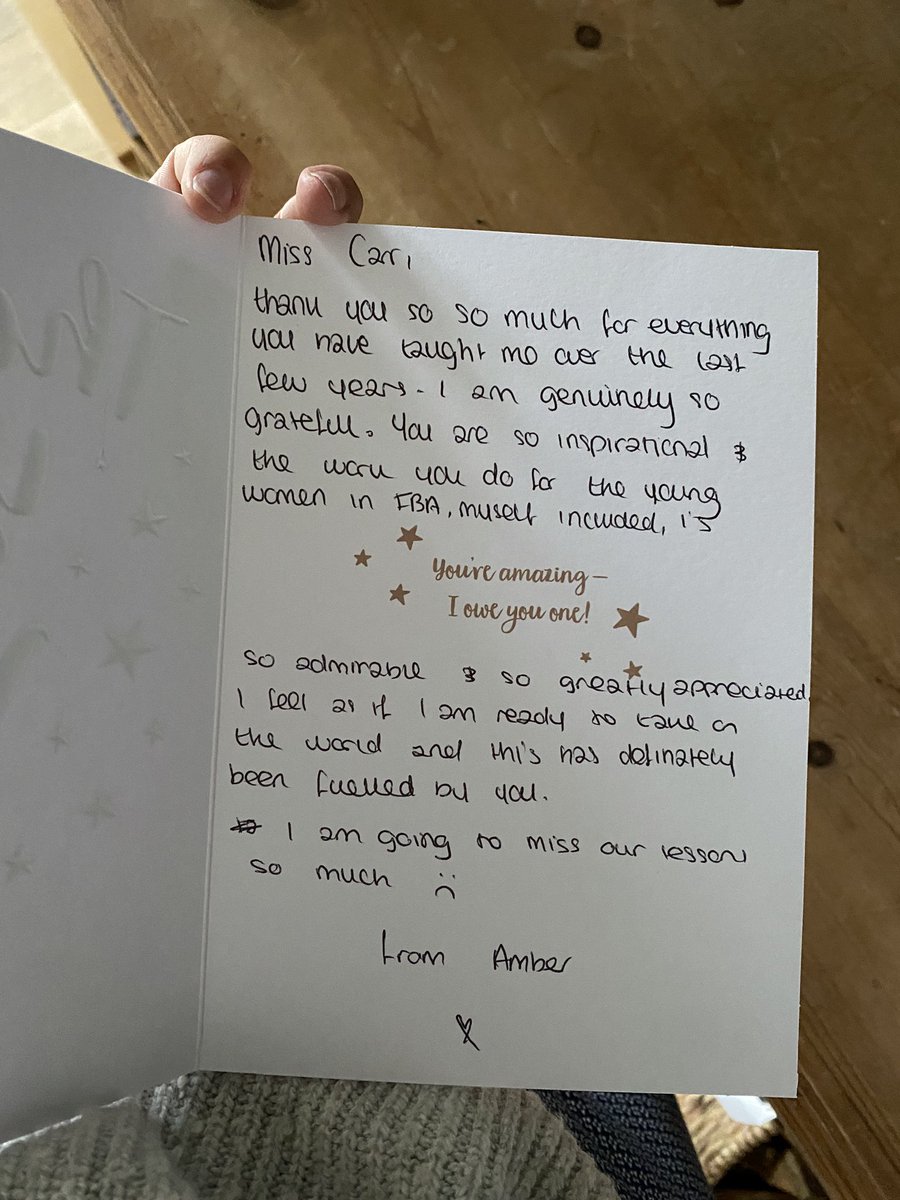 Miss Carr,
thank you so so much for everything
you have taught me over the last
few years - I am genuinely so
grateful. You are so inspirational &
the work you do for the young
women in FBA, myself included, is
You're amazing –
I owe you one!
so admirable & so greatly appreciated.
I feel as if I am ready to take on
the world and this has definately
been fuelled by you.
I am going to miss our lessons
so much :(
from Amber